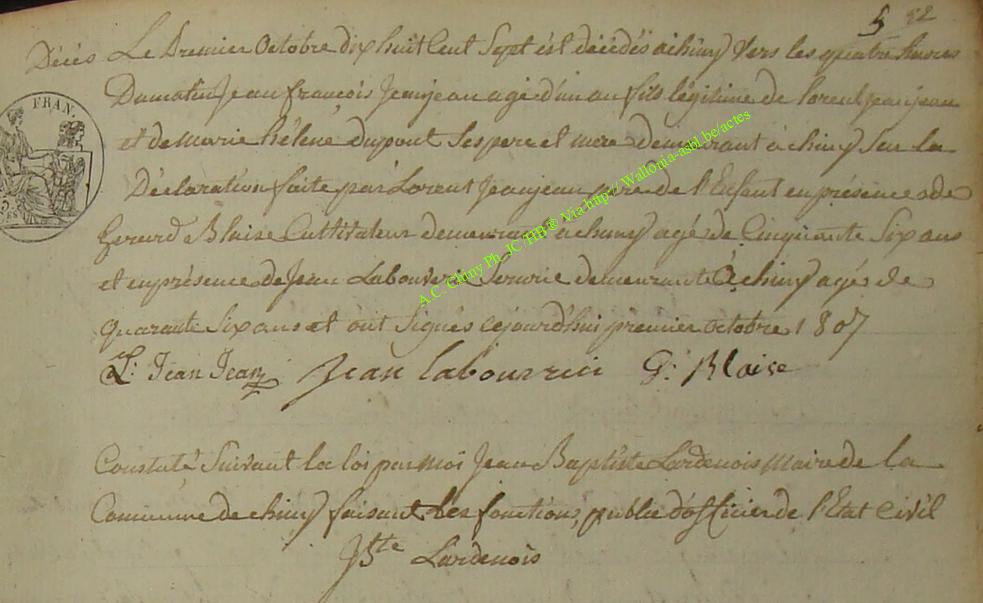 5 52
Décés Le Premier Octobre dix huit Cent Sept est décédés a chiny Vers les quatre heures
Du matin Jean françois Jeanjean agé d'un an fils légitime de Lorent jeanjean
et de Marie hélene dupont Ses pere et mere demeurant à chiny Sur la
Déclaration faite par Lorent Jeanjean pere de l'Enfant en présence de
Gerard Blaise Cultivateur demeurant a chiny agé de Cinquante Six ans
et en présence de Jean Labouverie demeurant à chiny agé de
quarante Six ans et ont Signés cejourd'hui premier octobre 1807
L: Jean Jean Jean labouverie G: Blaise
Constaté Suivant la loi par moi Jean Baptiste Lardenois Maire de la
Commune de chiny faisant les fonctions public d'officier de l'Etat Civil
JBte Lardenois
FRAN.
A.C. Chiny Ph. JC /HB® Via http:// Wallonia-asbl.be/actes